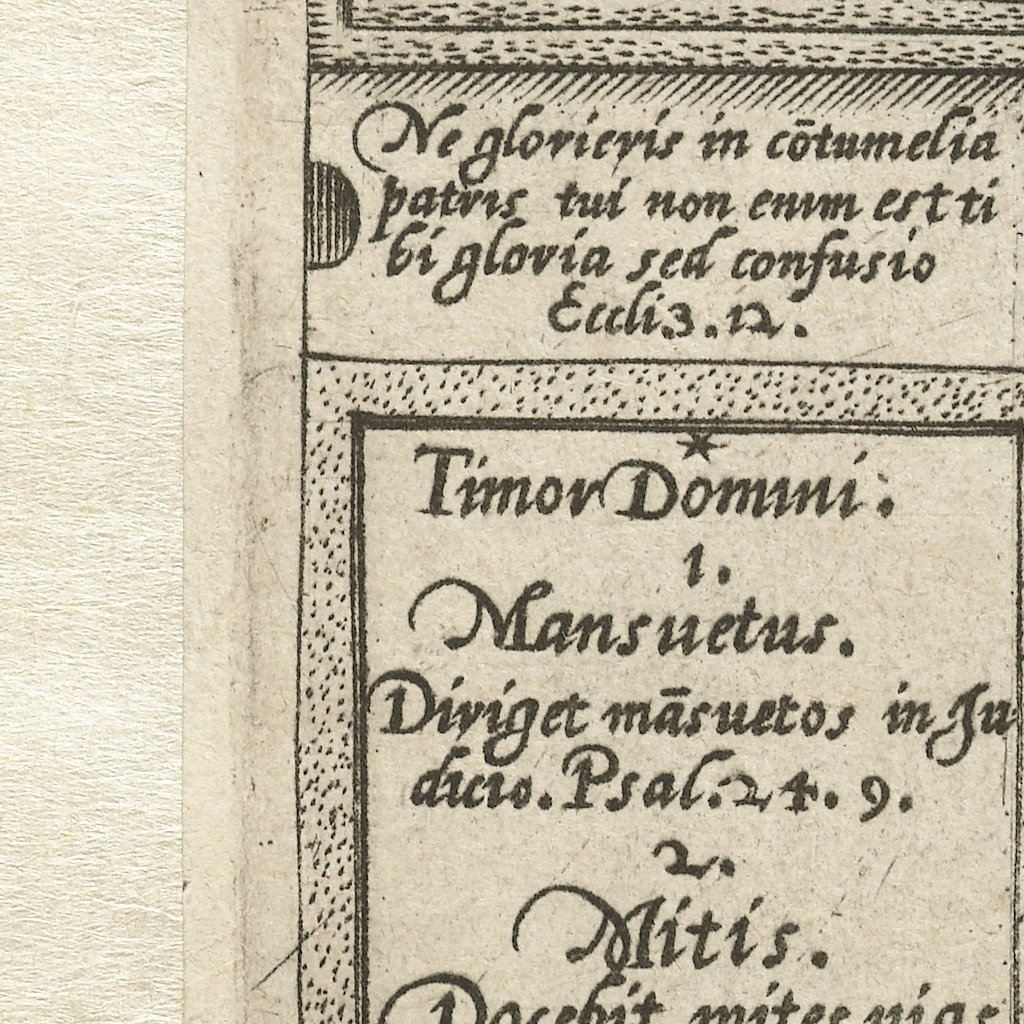 Ne glorieris in cōtumelia
patris tui non enim est ti
bi gloria sed confusio
Eccli.3.12.
Timor Domini.
1.
Mansuetus.
Diriget māsuetos in Ju
dicio. Psal. 24. 9.
2.
Mitis.
Docebit mites vias